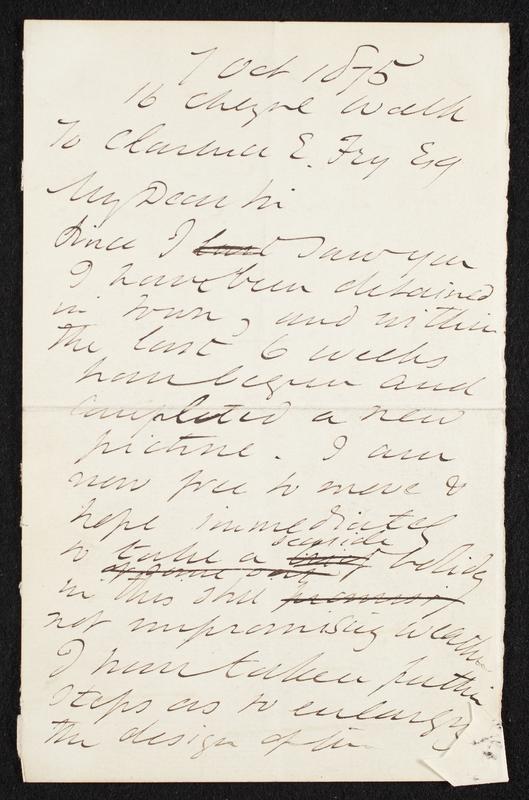 7 Oct 1875
16 Cheyne Walk
To Clarence E. Fry Esq
My Dear Sir
Since I last saw you
I have been detained
in town, and within
the last 6 weeks
have begun and
completed a new
picture. I am
now free to move &
hope immediately
seaside
to take a holiday
in this still promising
not unpromising weather
I have taken further
steps as to enlarging
the design of the